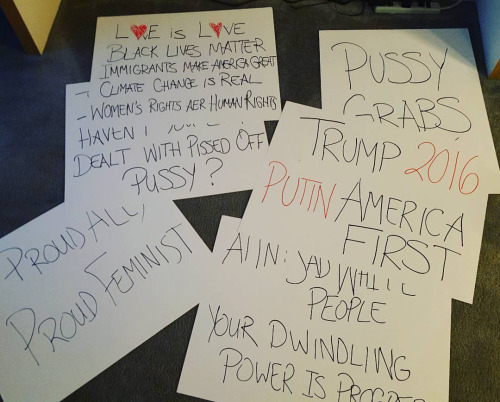 L♥E IS L♥VE
BLACK LIVES MATTER
IMMIGRANTS MAKE AMERICA GREAT
- CLIMATE CHANGE IS REAL
- WOMEN'S RIGHTS AER HUMAN RIGHTS
HAVEN'T
DEALT WITH PISSED OFF
PUSSY?
PUSSY
GRABS
TRUMP 2016
PUTIN AMERICA
FIRST
PROUD ALLY
PROUD FEMINIST
PEOPLE
YOUR DWINDLING
POWER IS